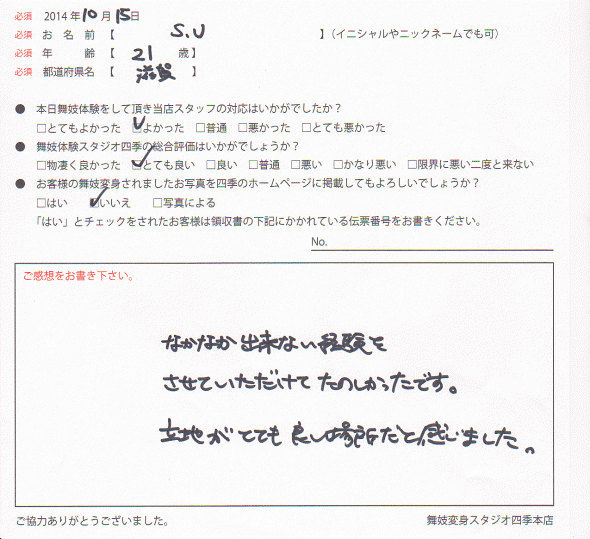 必須 2014年10月15日
必須 お名前 【 S.U 】(イニシャルやニックネームでも可)
必須 年齢 【 21 歳】
必須 都道府県名 【 滋賀 】
● 本日舞妓体験をして頂き当店スタッフの対応はいかがでしたか？
□とてもよかった ☑よかった □普通 □悪かった □とても悪かった
● 舞妓体験スタジオ四季の総合評価はいかがでしょうか？
□物凄く良かった ☑とても良い □良い □普通 □悪い □かなり悪い □限界に悪い二度と来ない
● お客様の舞妓変身されましたお写真を四季のホームページに掲載してもよろしいでしょうか？
□はい ☑いいえ □写真による
「はい」とチェックをされたお客様は領収書の下記にかかれている伝票番号をお書きください。
No.
ご感想をお書き下さい。
なかなか出来ない経験を
させていただけてたのしかったです。
立地がとても良い場所だと感じました。
ご協力ありがとうございました。
舞妓変身スタジオ四季本店